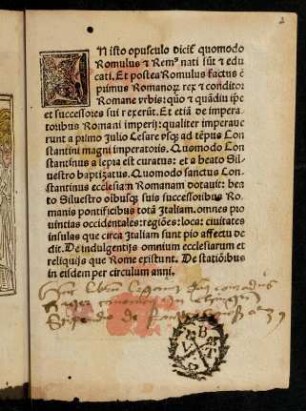 2
IN isto opusculo dicit̃ quomodo
Romulus ⁊ Rem⁹ nati sūt ⁊ edu
cati. Et postea Romulus factus ē
primus Romanoꝝ rex ⁊ conditoꝛ
Romane vrbis: quo ⁊ quādiu ip̄e
et successores sui rexerūt. Et etiā de impera-
toribus Romani imperij: qualiter imperaue
runt a primo Julio Cesare vsqꝫ ad tēpus Con
stantini magni imperatoris. Quomodo Con
stantinus a lepra est curatus: et a beato Sil
uestro baptizatus. Quomodo sanctus Con
stantinus ecclesiaꝫ Romanam dotauit: bea
to Siluestro oībusqꝫ suis successoribus Ro
manis pontificibus totā Italiam. omnes pro
uincias occidentales: regiões: loca: ciuitates
insulas que circa Italiam sunt pio affectu de
dit. De indulgentijs omnium ecclesiarum et
reliquijs que Rome existunt. De statiōibus
in eisdem per circulum anni.